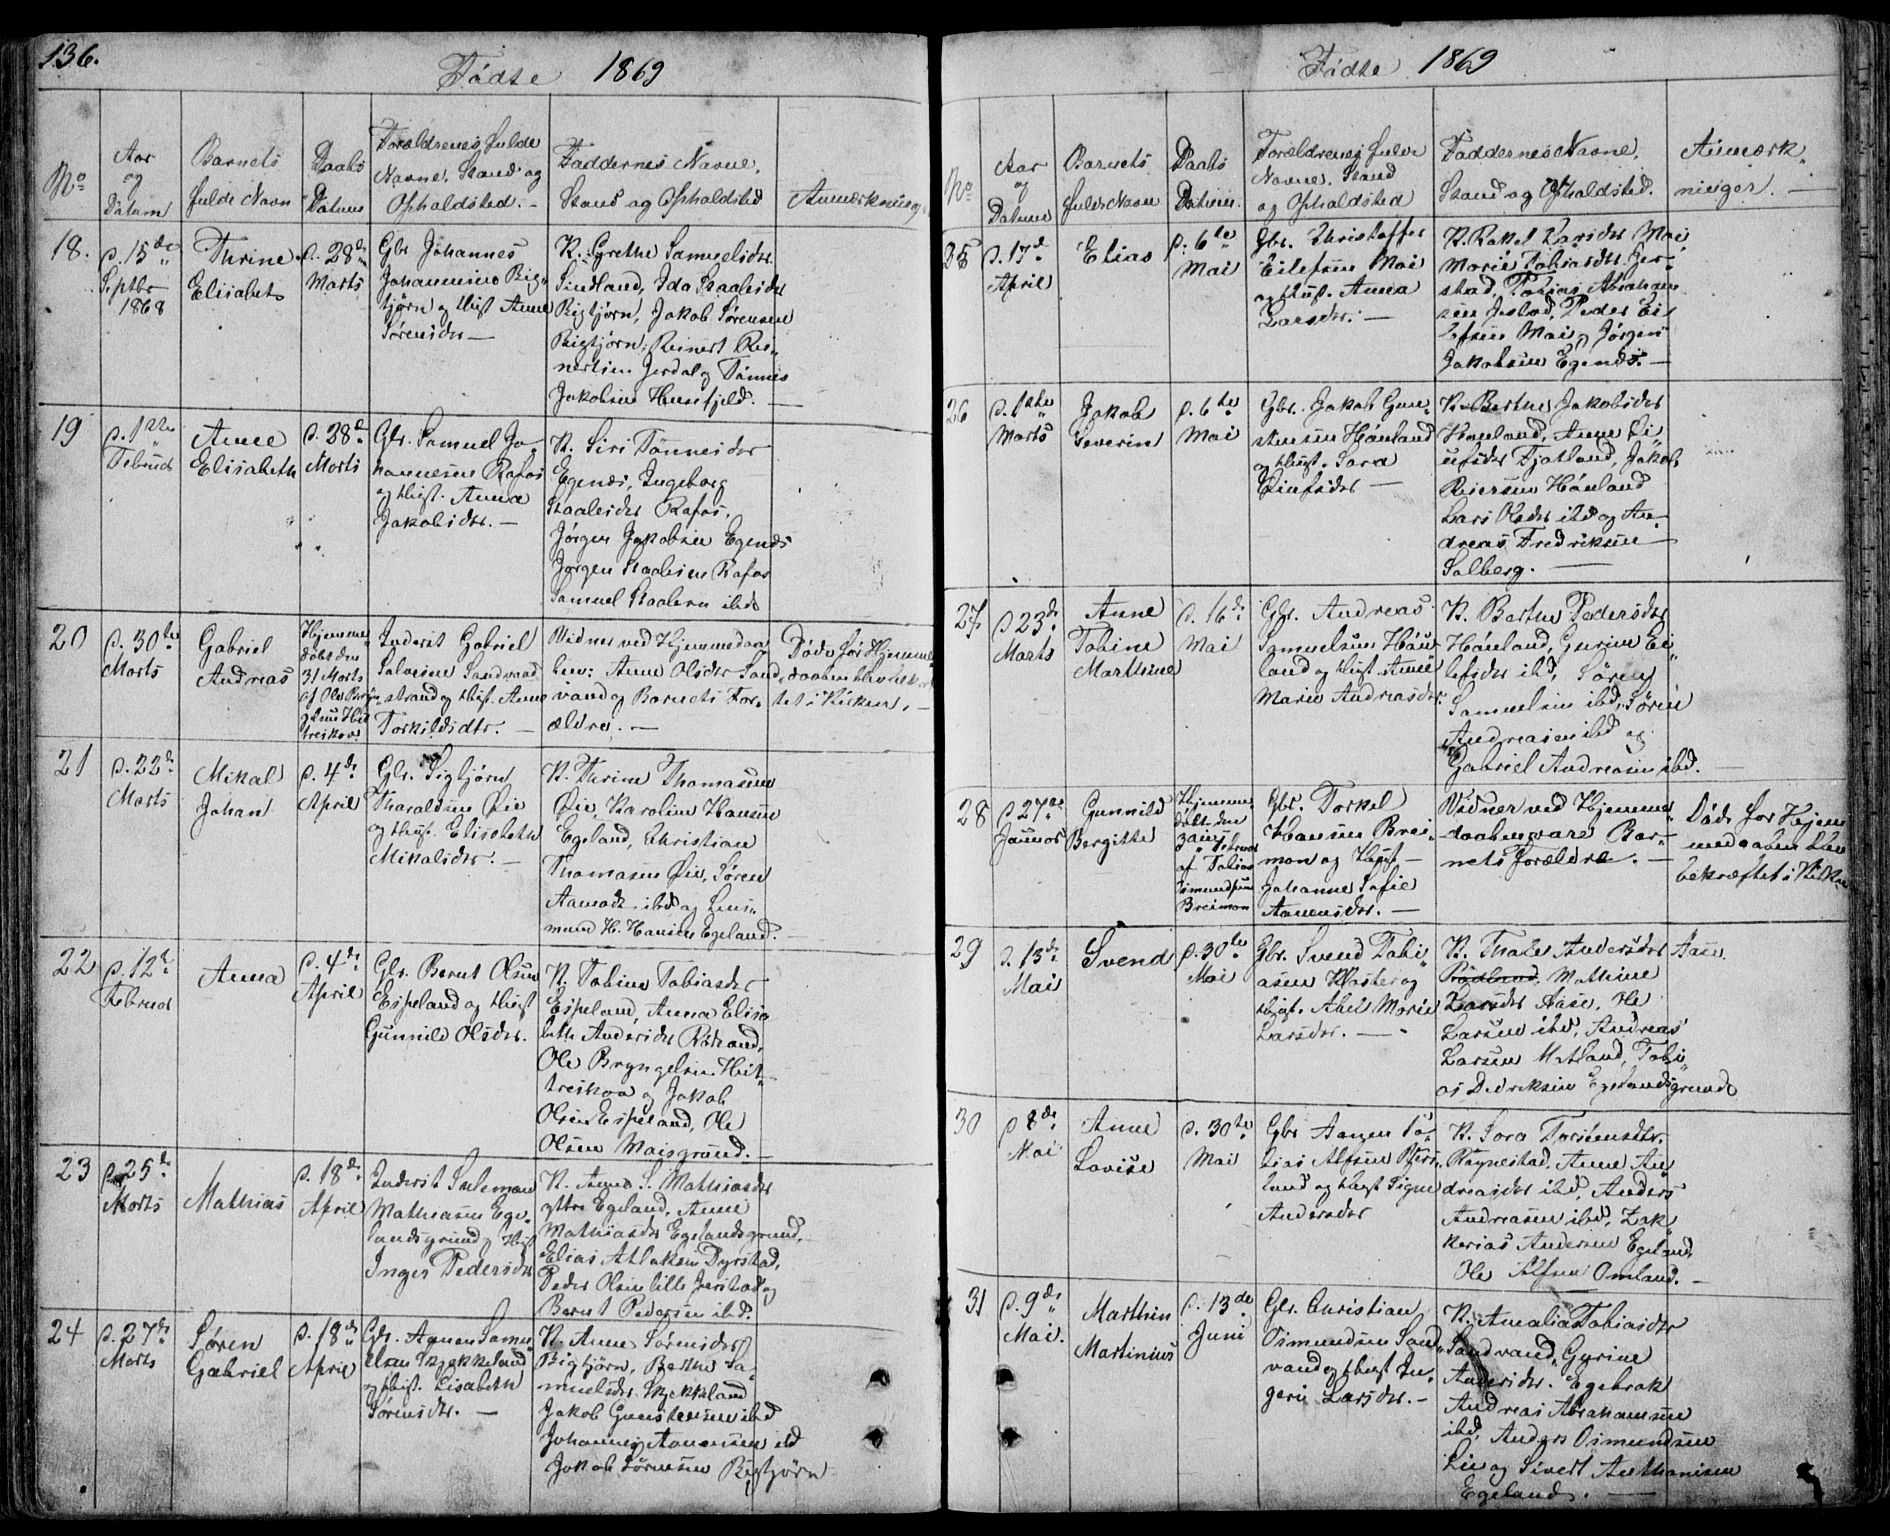 136.
Fødte 1869
No
Aar
og
Datum
Barnets
fulde Navn
Daabs
Datum
Forældrenes fulde
Navne, Stand og
Opholdsted. -
Faddernes Navne,
Stand og Opholdsted
Anmærkning
18.
d. 15de
Septbr
1868
Thrine
Elisabet
d. 28de
Marts
Gbr. Johannes
Johannesen Big-
tjørn og Hust Anne
Sørensdtr -
K. Grethe Samuelsdtr.
Sindland, Ida Staalesdtr
Bigtjørn, Jakob Sørensen
Bigtjørn, Reinert Rei-
nertsen Jerdal og Tønnes
Jakobsen Husefjeld. -
19
d. 1ste
Februar
Anne
Elisabeth
d. 28de
Marts
Gbr. Samuel Jo-
hannesen Rafos
og Hust. Anna
Jakobsdtr. -
K. Siri Tønnesdtr
Egenæs, Ingeborg
Staalesdtr Rafos,
Jørgen Jakobsen Egenæs
Jørgen Staalesen Rafos
Samuel Staalesen ibd
20
d. 30te
Marts
Gabriel
Andreas
Hjemme
døbt den
31 Marts
af Ole
Inderst Gabriel
Salvesen Sandvand
strand og Hust Anne
Torkildsdtr. -
Vidner ved Hjemmedaa
ben: Anne Olsdtr Sand
vand og Barnets For-
ældre. -
Døde før Hjemme
daaben blev bekræf
tet i Kirken. -
21
d. 22de
Marts
Mikal
Johan
d. 4de
April
Gbr. Sigbjørn
Tharaldsen Øie
og Hust. Elisabeth
Mikalsdtr. -
K. Thrine Thomasen
Øie, Karoline Hansen
Egeland, Christian
Thomasen Øie, Søren
Aamodt ibd og
H. Hansen Egeland.
22
d. 12te
Februar
Anna
d. 4de
April
Gbr. Bernt Olsen
Espeland og Hust
Gunnild Olsdtr.
K. Tobine Tobiasdtr
Espeland, Anna Elisa
beth Andersdtr
Ole Bryngelsen Heit-
treskov og Jakob
Olsen Espeland, Ole
Olsen Maisgrund. -
23
d. 25de
Marts
Mathias
d. 18de
April
Inderst Salomon
Mathiasen Ege-
landsgrund og Hust
Inger Pedersdtr
K. Anne S. Mathiasdtr
ytre Egeland, Anne
Mathiasdtr Egelandsgrund,
Elias Atlaksen Dyrstad,
Peder Olsen lille Jerstad og
Bernt Pedersen ibd.
24
d. 27de
Marts
Søren
Gabriel
d. 18de
April
Gbr. Aanen Samu-
elsen Skjekkeland
og Hust. Lisabeth
Sørensdtr. -
K. Anne Sørensdtr
Bigtjørn, Berthe Sa-
muelsdtr. Skjekkeland
Jakob Gunstensen ibd
Johannes Aanensen ibd
Jakob Sørensen Bigtjørn
Fødte 1869
No
Aar
og
Datum
Barnets
fulde Navn
Daabs
Datum.
Forældrenes fulde
Navne, Stand
og Opholdsted
Faddernes Navne,
Stand og Opholdsted.
Anmærk-
ninger. -
25
d. 17de
April
Elias
d. 6te
Mai
Gbr. Christoffer
Eilefsen Mai
og Hust. Anna
Larsdtr. -
K. Rakel Larsdtr Mai
Marie Tobiasdtr. Jer-
stad, Tobias Abraham
sen Jerstad, Peder Ei-
lefsen Mai, Jørgen
Jakobsen Egenæs. -
26
d. 1ste
Marts
Jakob
Severin
d. 6te
Mai
Gbr. Jakob Gun-
stensen Hånland
og Hust. Sara
-
K. Berthe Jakobsdtr
Hånland, Anne
Fjotland, Jakob
Reiersen Hånland
Lars Olsdtr ibd og An-
dreas Fredriksen
Salberg. -
27
d. 23de
Marts
Anne
Tobine
Marthine
d. 16de
Mai
Gbr. Andreas
Samuelsen Hån-
land og Hust. Anne
Marie Andreasdtr.
K. Berthe Pedersdtr
Hånland, Gurine Ei-
lefsdtr ibd, Søren
Samuelsen ibd, Søren
Andreasen ibd og
Gabriel Andreasen ibd.
28
d. 27de
Januar
Gunnild
Bergitte
Hjemme
døbt den
af Tobias
Osmundsen
Breimon
Gbr. Torkel
Hansen Brei-
mon og Hust -
Johanne Sofie
Aanensdtr. -
Vidner ved Hjemme-
daaben vare Bar-
nets Forældre. -
Døde før Hjem
medaaben blev
bekræftet i Kirken
29
d. 13de
Mai
Svend
d. 30te
Mai
Gbr. Svend Tobi-
asen Kloster og
Hust. Abel Marie
Larsdtr. -
K. Thale Andersdtr Aase.
Mathine
Larsdtr Aase, Ole
Larsen ibd, Andreas
Larsen Metland, Tobi-
as Didriksen Egelandsgrund
30
d. 8de
Mai
Anne
Lovise
d. 30te
Mai
Gbr Aanen To-
bias Alfsen
land og Hust Signe
Andersdtr
K. Sara Torstensdtr.
Røynestad, Anne An-
dreasdtr ibd, Anders
Andreasen ibd, Zak-
karias Andersen Egeland,
Ole Alfsen Omland. -
31
d. 9de
Mai.
Marthin
Martinius
d. 13de
Juni
Gbr. Christian
Osmundsen Sand-
vand og Hust In-
geri Larsdtr. -
K. Amalia Tobiasdtr
Sandvand, Gurine
Andersdtr. Egebrok
Andreas Abrahamsen
ibd, Anders Osmundsen
Lie og Sivert Anthonisen
Egeland. -